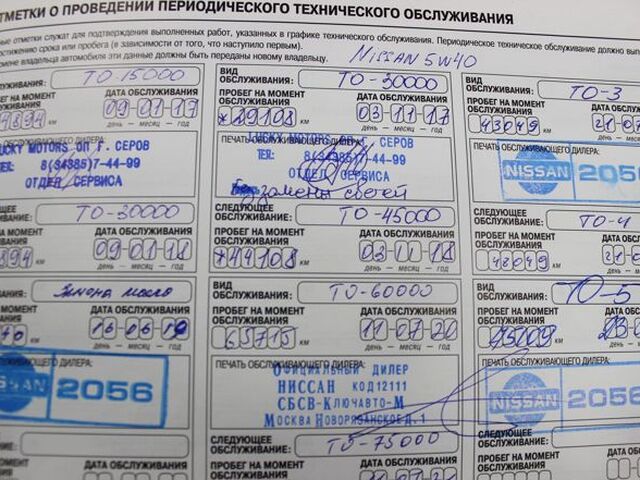 ТМЕТКИ О ПРОВЕДЕНИИ ПЕРИОДИЧЕСКОГО ТЕХНИЧЕСКОГО ОБСЛУЖИВАНИЯ
ные отметки служат для подтверждения выполненных работ, указанных в графике технического обслуживания. Периодическое техническое обслуживание должно выпол
остижению срока или пробега (в зависимости от того, что наступило первым).
смене владельца автомобиля эти данные должны быть переданы новому владельцу.
NISSAN 5W40
ОБСЛУЖИВАНИЯ:
ТО-15000
ПРОБЕГ НА МОМЕНТ ОБСЛУЖИВАНИЯ
ДАТА ОБСЛУЖИВАНИЯ
4894
09 01 17
день — месяц — год
LUCKY MOTORS ОП Г. СЕРОВ
ТЕЛ: 8(34385)7-44-99
ОТДЕЛ СЕРВИСА
ТО-30000
ДАТА ОБСЛУЖИВАНИЯ
4894
09 01 18
день — месяц — год
Замена масла
ДАТА ОБСЛУЖИВАНИЯ
день — месяц — год
ОБСЛУЖИВАЮЩЕГО ДИЛЕРА:
NISSAN 2056
ДАТА ОБСЛУЖИВАНИЯ
ВИД ОБСЛУЖИВАНИЯ:
ТО-30000
ПРОБЕГ НА МОМЕНТ ОБСЛУЖИВАНИЯ
ДАТА ОБСЛУЖИВАНИЯ
29108
03 11 17
день — месяц — год
ПЕЧАТЬ ОБСЛУЖИВАЮЩЕГО ДИЛЕРА:
LUCKY MOTORS ОП Г. СЕРОВ
ТЕЛ: 8(34385)7-44-99
ОТДЕЛ СЕРВИСА
замены свечей
СЛЕДУЮЩЕЕ ОБСЛУЖИВАНИЕ:
ТО-45000
ПРОБЕГ НА МОМЕНТ ОБСЛУЖИВАНИЯ
ДАТА ОБСЛУЖИВАНИЯ
44108
03 11 18
день — месяц — год
ВИД ОБСЛУЖИВАНИЯ:
ТО-60000
ПРОБЕГ НА МОМЕНТ ОБСЛУЖИВАНИЯ
ДАТА ОБСЛУЖИВАНИЯ
65715
11 07 20
день — месяц — год
ПЕЧАТЬ ОБСЛУЖИВАЮЩЕГО ДИЛЕРА:
ОФИЦИАЛЬНЫЙ ДИЛЕР
НИССАН КОД 12111
СБСВ-КЛЮЧАВТО-М
МОСКВА НОВОРЯЗАНСКОЕ Д.1
СЛЕДУЮЩЕЕ ОБСЛУЖИВАНИЕ:
ТО-75000
ПРОБЕГ НА МОМЕНТ
ДАТА ОБСЛУЖИВАНИЯ
11 07 21
ВИД ОБСЛУЖИВАНИЯ:
ТО-3
ПРОБЕГ НА МОМЕНТ ОБСЛУЖИВАНИЯ
ДАТА ОБСЛУЖ
43049
день — м
ПЕЧАТЬ ОБСЛУЖИВАЮЩЕГО ДИЛЕРА:
NISSAN 2056
СЛЕДУЮЩЕЕ ОБСЛУЖИВАНИЕ:
ТО-4
ПРОБЕГ НА МОМЕНТ ОБСЛУЖИВАНИЯ
ДАТА ОБСЛУ
день —
ВИД ОБСЛУЖИВАНИЯ:
ТО-5
ПРОБЕГ НА МОМЕНТ ОБСЛУЖИВАНИЯ
ПЕЧАТЬ ОБСЛУЖИВАЮЩЕГО ДИЛЕРА:
NISSAN 2056
СЛЕДУЮЩЕЕ ОБСЛУЖИВАНИЕ: